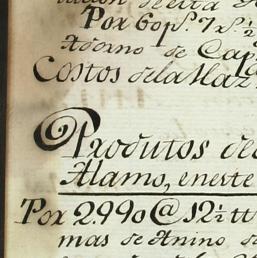 Por 60 p.s 7 r.s ½
Adorno de Cap
Costos de la Haz
Produtos de
Alamo, en este
Por 2990 @ 12½ tt
mas de Anino